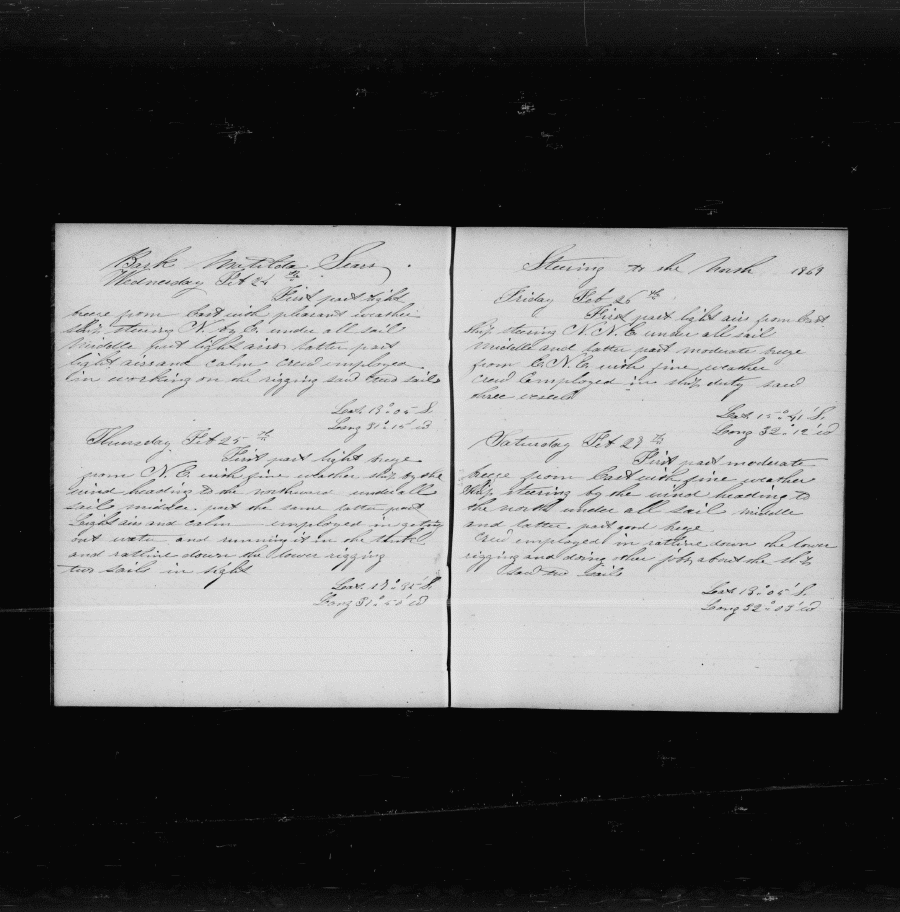 Bark Matilda Sears
Wednesday Feb 24th
First part light
breeze from East with pleasant weather
ship steering N by E under all sail
Middle part light airs latter part
light airs and calm crew employed
in working on the rigging saw two sails
Lat 18° 05' S.
Long 31° 15' W
Thursday Feb 25th
First part light breze
from N.E. with fine weather ship by the
wind heading to the northward under all
sail middle part the same latter part
Light airs and calm employed in geting
out water and running it in the
and ratline down the lower rigging
two sails in sight
Lat 17° 32' S.
Long 31° 50' W
Steering to the North 1869
Friday Feb 26th
First part light airs from East
ship stering N.N.E under all sail
middle and latter part moderate breze
from E.N.E with fine weather
crew employed in ship duty saw
three vessels
Lat 15° 41 S.
Long 32° 12' W
Saturday Feb 27th
First part moderate
breeze from East with fine weather
ship steering by the wind heading to
the north under all sail middle
and latter part good breze
crew employed in ratline down the lower
rigging and doing other jobs about the
saw two sails
Lat 13° 05' S.
Long 32° 07' W